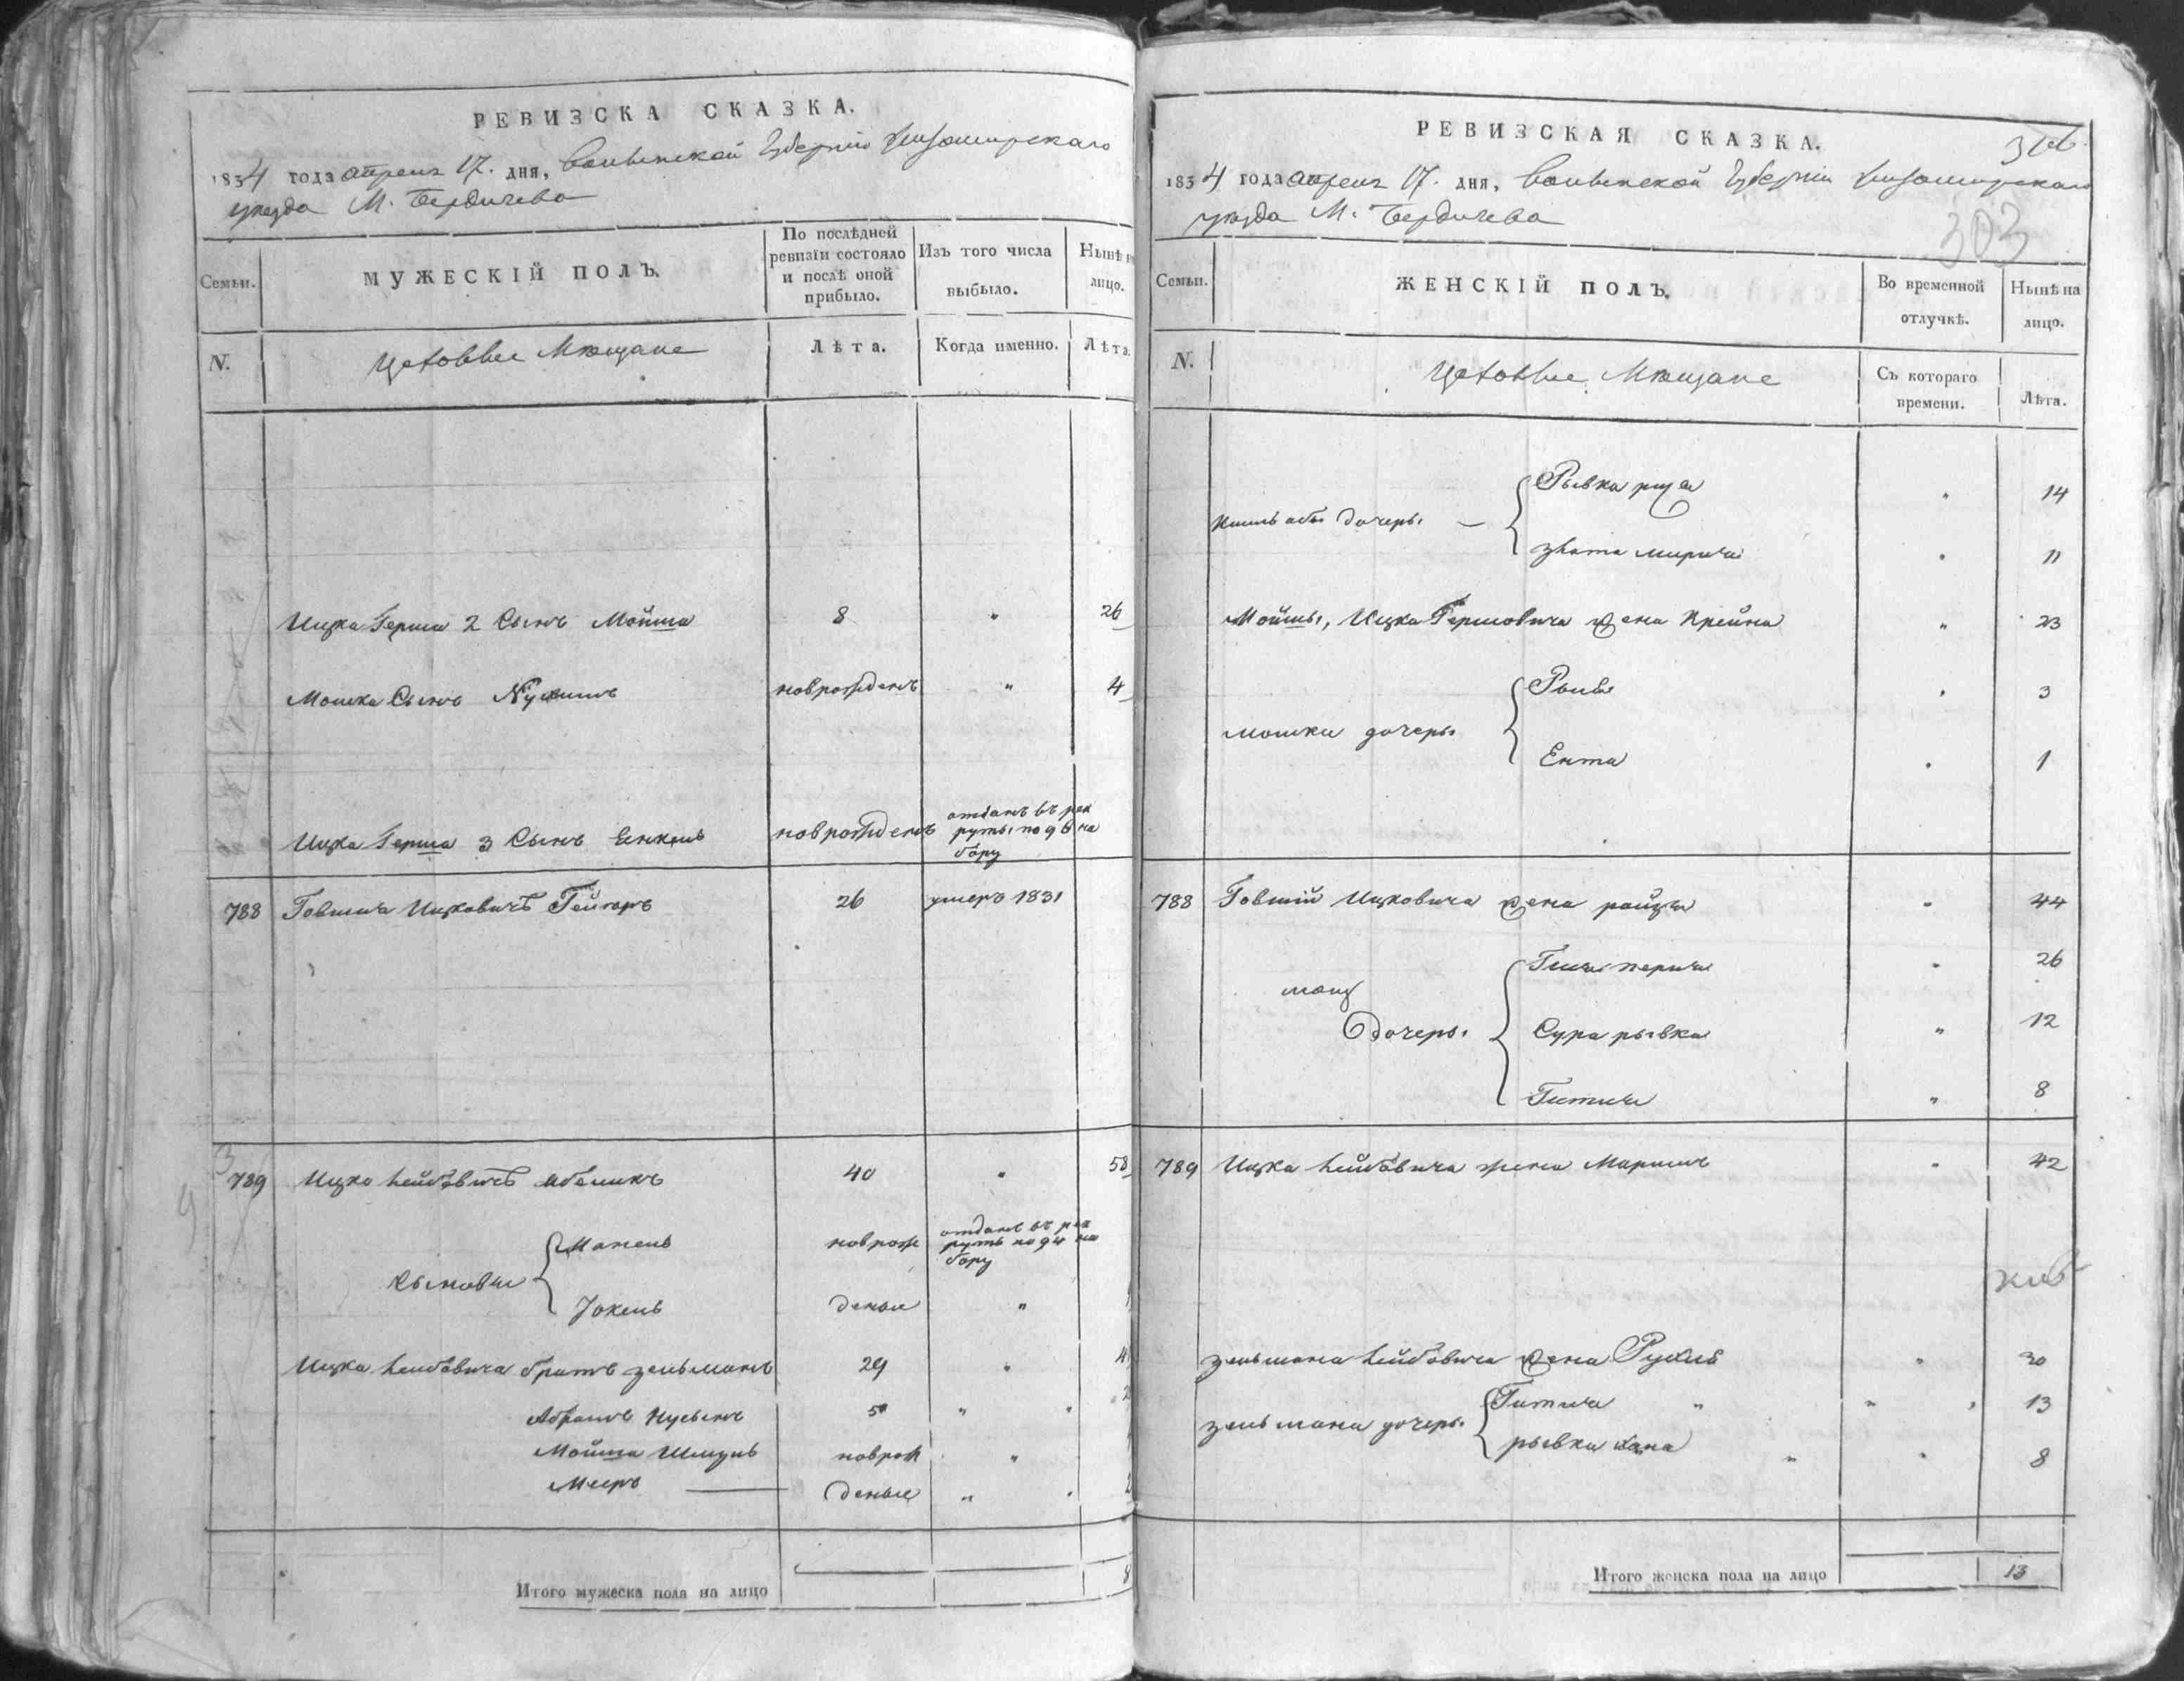 РЕВИЗСКА СКАЗКА.
1834 года апреля 17. дня, Волынской Губернии Житомирскаго
уезда М. Бердичева
Семьи.
МУЖЕСКІЙ ПОЛЪ.
По послѣдней
ревизіи состояло
и послѣ оной
прибыло.
Изъ того числа
выбыло.
Нынѣ на
лицо.
N.
Цеховые Мещане
Лѣта.
Когда именно.
Лѣта.
Ицка Герша 2 Сынъ Мойша 8 " 26
Мошка Сынъ новрожденъ " 4
Ицка Герша 3 Сынъ Енкель новрожденъ отданъ въ рек
руты по 90 на
бору
788 Говшия Ицковичъ 26 умеръ 1831
789 Ицко Лейбовичъ 40 " 58
Сыновья
новрож отданъ въ рек
руты по 94 на
бору
Іокель деные "
Ицка Лейбовича братъ Зельманъ 29 "
Абрамъ Нусынъ 5 "
Мойша Шмуль новрож "
Мееръ деные "
Итого мужеска пола на лицо 8
РЕВИЗСКАЯ СКАЗКА.
303
1834 года апреля 17. дня, Волынской Губерніи Житомирскаго
уезда М. Бердичева
Семьи.
ЖЕНСКІЙ ПОЛЪ.
Во временной
отлучкѣ.
Нынѣ на
лицо.
N.
Цеховые Мещане
Съ котораго
времени.
Лѣта.
Рывка " 14
дочеры
Злата " 11
Мойшы, Ицка Гершовича жена Крейна " 23
" 3
Мошки дочеры
Ента " 1
788 Говший Ицковича жена Райза " 44
" 26
дочеры Сура Рывка " 12
Гитля " 8
789 Ицка Лейбовича жена " 42
Зельмана Лейбовича жена Рухля " 30
Гитля " " 13
Зельмана дочеры
Рывка Хана " " 8
Итого женска пола на лицо 13